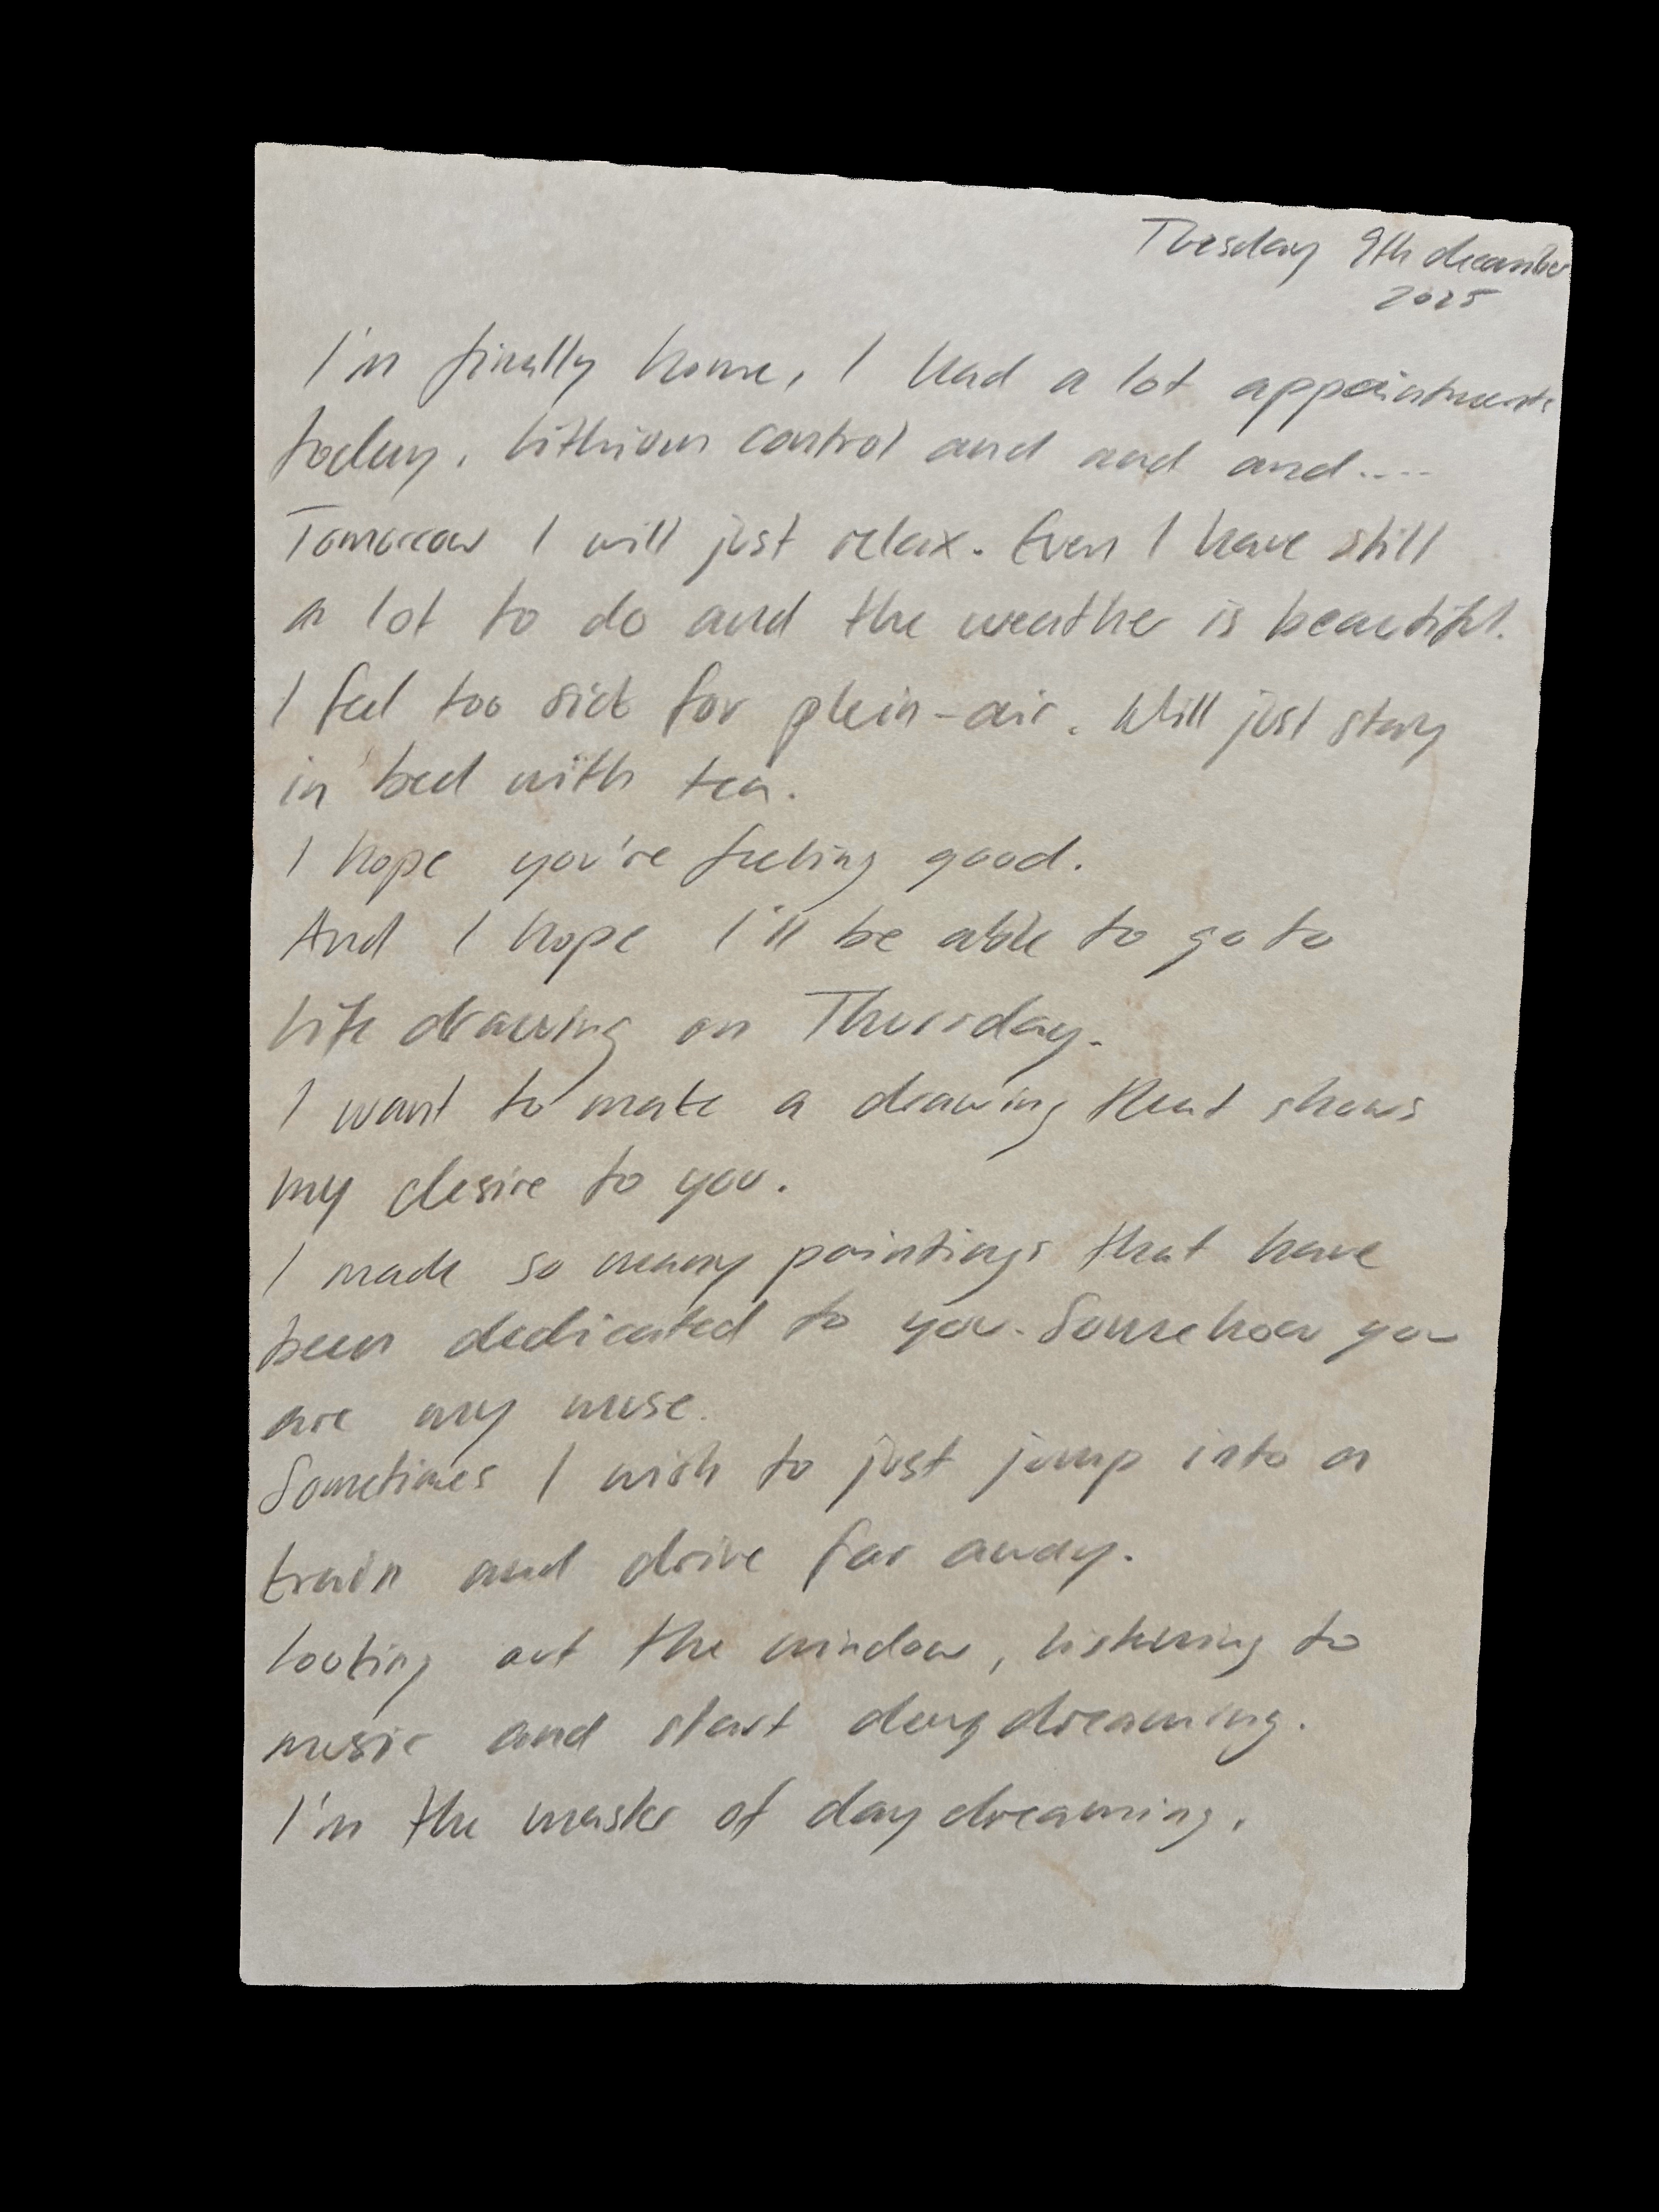 Tuesday 9th december
2025
I'm finally home, I had a lot appointments
today. Lithium control and and and....
Tomorrow I will just relax. Even I have still
a lot to do and the weather is beautiful.
I feel too sick for plein-air. Will just stay
in bed with tea.
I hope you're feeling good.
And I hope I'll be able to go to
Life drawing on Thursday.
I want to make a drawing that shows
my desire to you.
I made so many paintings that have
been dedicated to you. Somehow you
are my muse.
Sometimes I wish to just jump into a
train and drive far away.
Looking out the window, listening to
music and start daydreaming.
I'm the master of daydreaming.